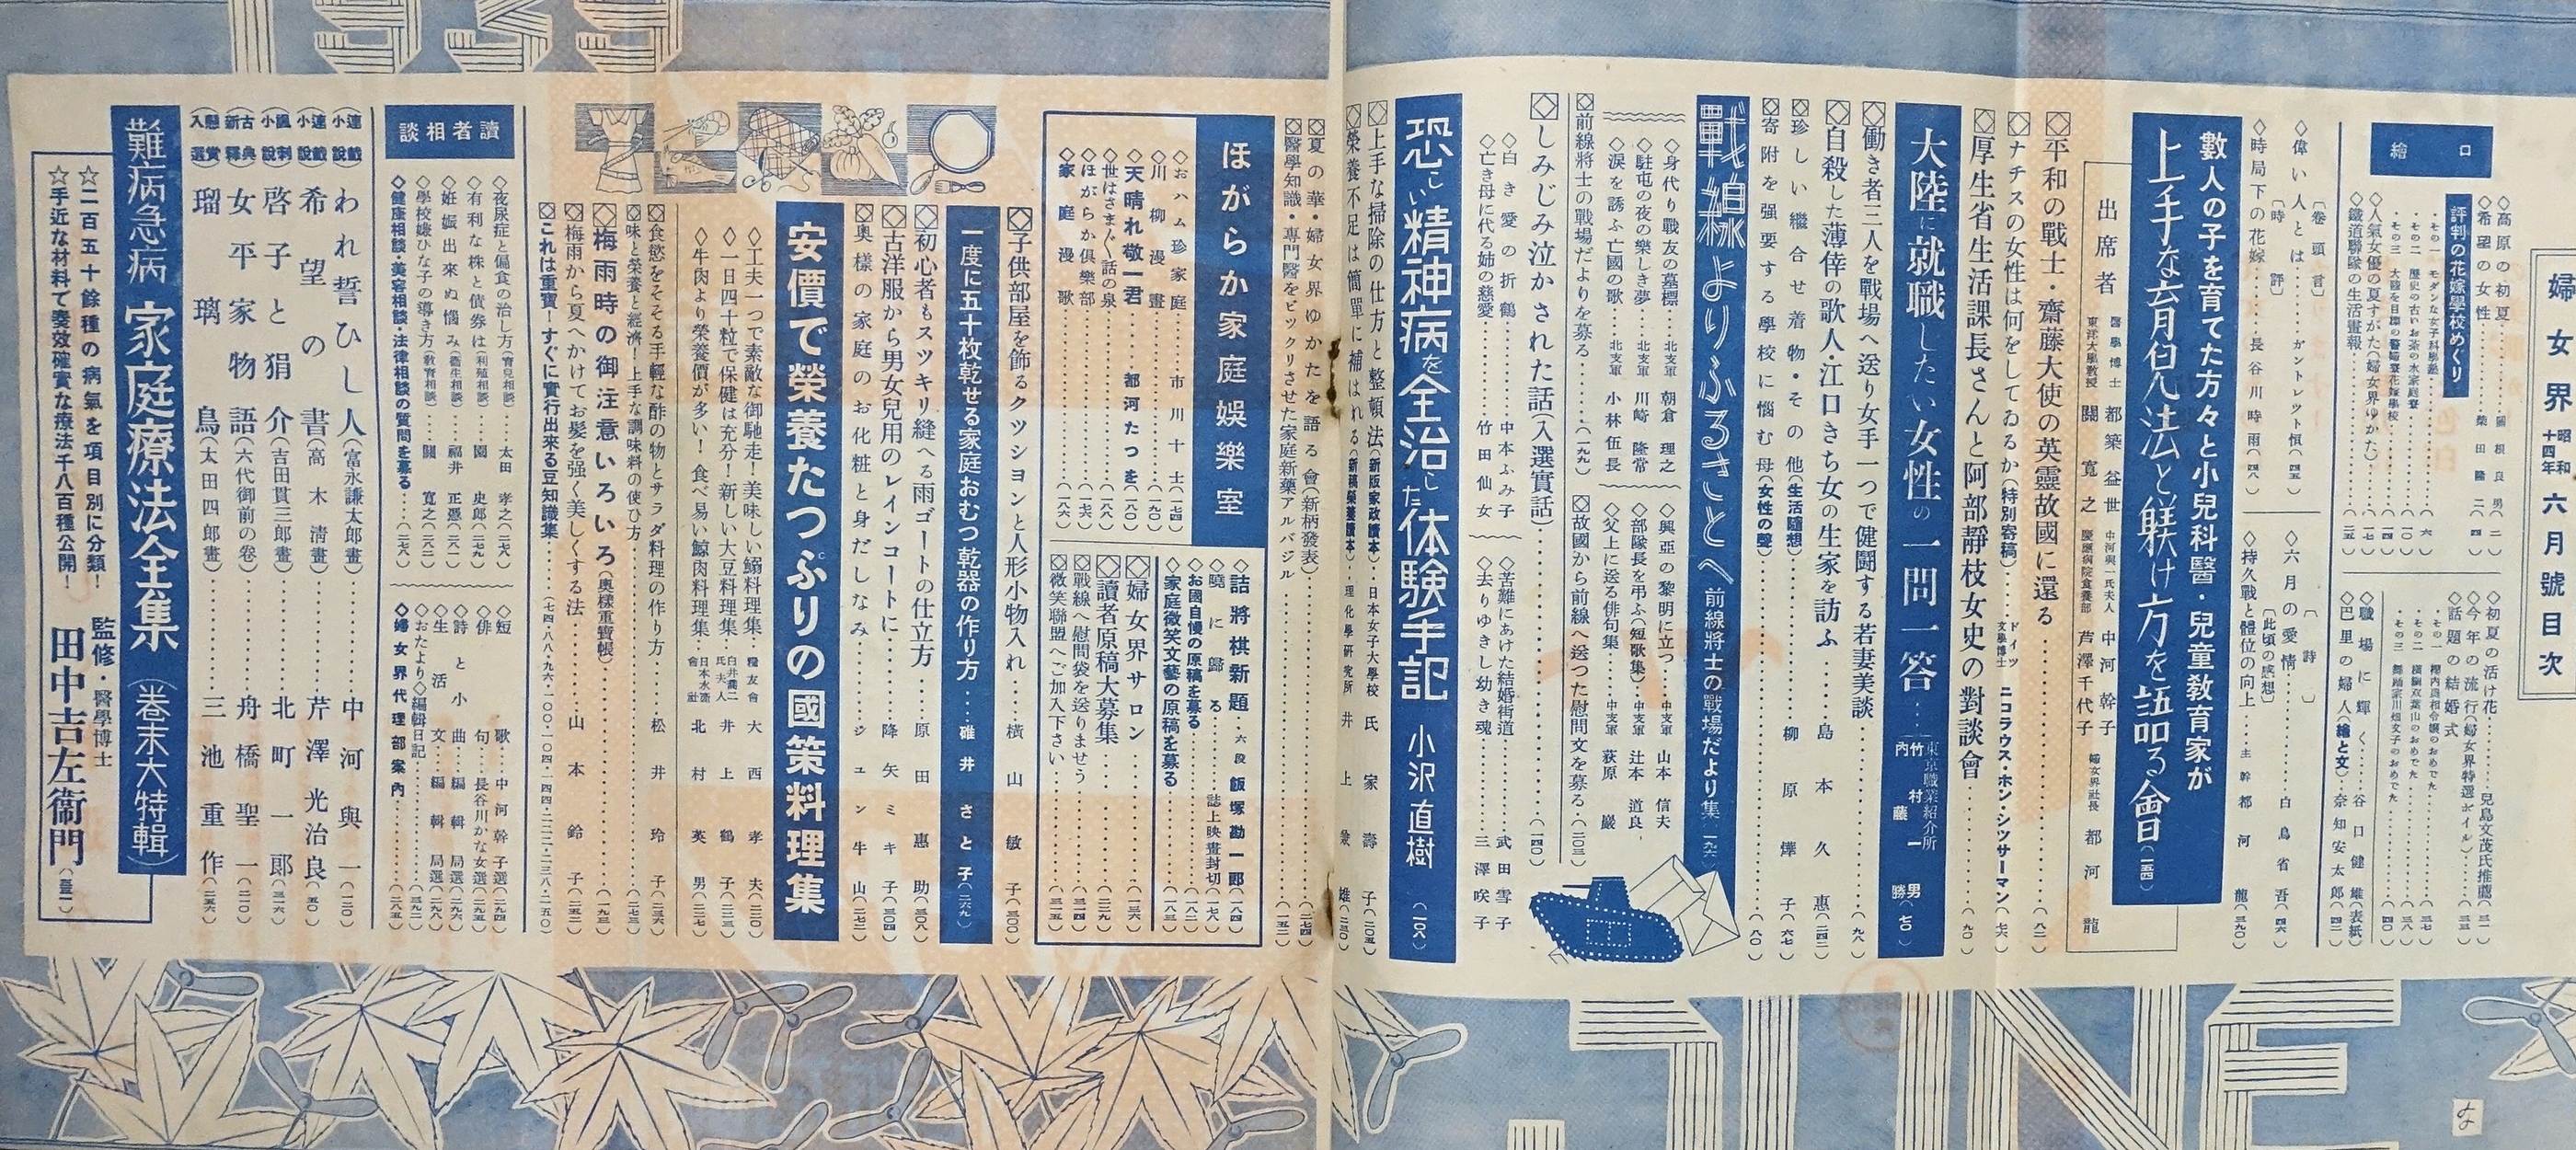 婦女界 昭和十四年 六月號目次
口繪
◇高原の初夏
◇希望の女性
評判の花嫁學校めぐり
その一 モダンな女子科學塾
その二 歷史の古いお茶の水家庭寮
その三 大陸を目標の
◇人氣女優の夏すがた(婦女界ゆかた)
◇鐵道聯隊の生活畫報
◇初夏の活け花…兒島文茂氏推薦
◇今年の流行(婦女界特選ボイル)
◇話題の結婚式
◇職場に輝く…谷口健雄(表紙)
◇巴里の婦人(繪と文)…奈知安太郎
◇偉い人とは…ガントレツト恒
〔卷頭言〕
◇時局下の花嫁…長谷川時雨
〔時評〕
◇六月の愛情…白鳥省吾
〔詩〕
◇持久戰と體位の向上…主幹 都河龍
〔此頃の感想〕
數人の子を育てた方々と小兒科醫・兒童教育家が
上手な育兒法と躾け方を語る會
出席者
醫學博士 都築益世
東洋大學教授 關寬之
中河與一氏夫人 中河幹子
慶應病院食養部 芦澤千代子
婦女界社長 都河龍
平和の戰士・齋藤大使の英靈故國に還る
ナチスの女性は何をしてゐるか(特別寄稿)…ドイツ文學博士 ニコラウス・ホン・シツサーマン
厚生省生活課長さんと阿部靜枝女史の對談會
大陸に就職したい女性の一問一答…東京職業紹介所 竹村一男 内藤勝
働き者三人を戰場へ送り女手一つで健闘する若妻美談
自殺した薄倖の歌人・江口きち女の生家を訪ふ…島本久惠
珍しい繼合せ着物・その他(生活隨想)…柳原燁子
寄附を强要する學校に惱む母(女性の聲)
戰線よりふるさとへ 前線將士の戰場だより集
◇身代り戰友の墓標…北支軍 朝倉理之
◇駐屯の夜の樂しき夢…北支軍 川崎隆常
◇淚を誘ふ亡國の歌…北支軍 小林伍長
◇興亞の黎明に立つ…中支軍 山本信夫
◇部隊長を弔ふ(短歌集)…中支軍 辻本道良
◇父上に送る俳句集…中支軍 萩原巖
前線將士の戰場だよりを募る
故國から前線へ送つた慰問文を募る
しみじみ泣かされた話(入選實話)
◇白き愛の折鶴…中本ふみ子
◇亡き母に代る姉の慈愛…竹田仙女
◇苦難にあけた結婚街道…武田雪子
◇去りゆきし幼き魂…三澤咲子
恐しい精神病を全治した体験手記 小沢直樹
上手な掃除の仕方と整頓法(新版家政讀本)…日本女子大學校 氏家壽子
榮養不足は簡單に補はれる(新稿榮養讀本)…理化學硏究所 井上兼雄
夏の華・婦女界ゆかたを語る會(新柄發表)
醫學知識・專門醫をビックリさせた家庭新藥アルバジル
ほがらか家庭娛樂室
◇おハム珍家庭…市川十士
◇川柳漫畫
◇天晴れ敬一君…都河たつを
◇世はさまざま話の泉
◇ほがらか倶樂部
◇家庭漫歌
◇詰將棋新題…六段 飯塚勘一郎
◇曉に歸る…誌上映畫封切
◇お國自慢の原稿を募る
◇家庭微笑文藝の原稿を募る
婦女界サロン
讀者原稿大募集
戰線へ慰問袋を送りませう
微笑聯盟へご加入下さい
子供部屋を飾るクツシヨンと人形小物入れ…橫山敏子
一度に五十枚乾せる家庭おむつ乾器の作り方…碓井さと子
初心者もスツキリ縫へる雨ゴートの仕立方…原田惠助
古洋服から男女兒用のレインコートに…降矢ミキ子
奥樣の家庭のお化粧と身だしなみ…ジュン牛山
安價で榮養たつぷりの國策料理集
◇工夫一つで素敵な御馳走!美味しい鰯料理集…糧友會 大西孝夫
◇一日四十粒で保健は充分!新しい大豆料理集…井上鶴子
◇牛肉より榮養價が多い!食べ易い鯨肉料理集…北村英男
食慾をそそる手輕な酢の物とサラダ料理の作り方…松井玲子
味と榮養と經濟!上手な調味料の使ひ方
梅雨時の御注意いろいろ(奥樣重寶帳)
梅雨から夏へかけてお髪を强く美しくする法…山本鈴子
これは重寶!すぐに實行出來る豆知識集
讀者相談
◇夜尿症と偏食の治し方(育兒相談)…太田孝之
◇有利な株と債券は(利殖相談)…園史郎
◇妊娠出來ぬ惱み(衞生相談)…福井正憑
◇學校嫌ひな子の導き方(教育相談)…關寬之
◇健康相談・美容相談・法律相談の質問を募る
◇短歌…中河幹子選
◇俳句…長谷川かな女選
◇詩と小曲…編輯局選
◇生活文…編輯局選
◇おたより◇編輯日記
◇婦女界代理部案內
連載小說 われ誓ひし人(富永謙太郎畫)…中河與一
連載小說 希望の書(高木淸畫)…芹澤光治良
諷刺小說 啓子と狷介(吉田貫三郎畫)…北町一郎
古典新釋 女平家物語(六代御前の卷)…舟橋聖一
懸賞入選 瑠璃鳥(太田四郎畫)…三池重作
難病急病 家庭療法全集(卷末大特輯)
☆二百五十餘種の病氣を項目別に分類!
☆手近な材料で奏效確實な療法千八百種公開!
監修・醫學博士 田中吉左衞門
1939
JUNE